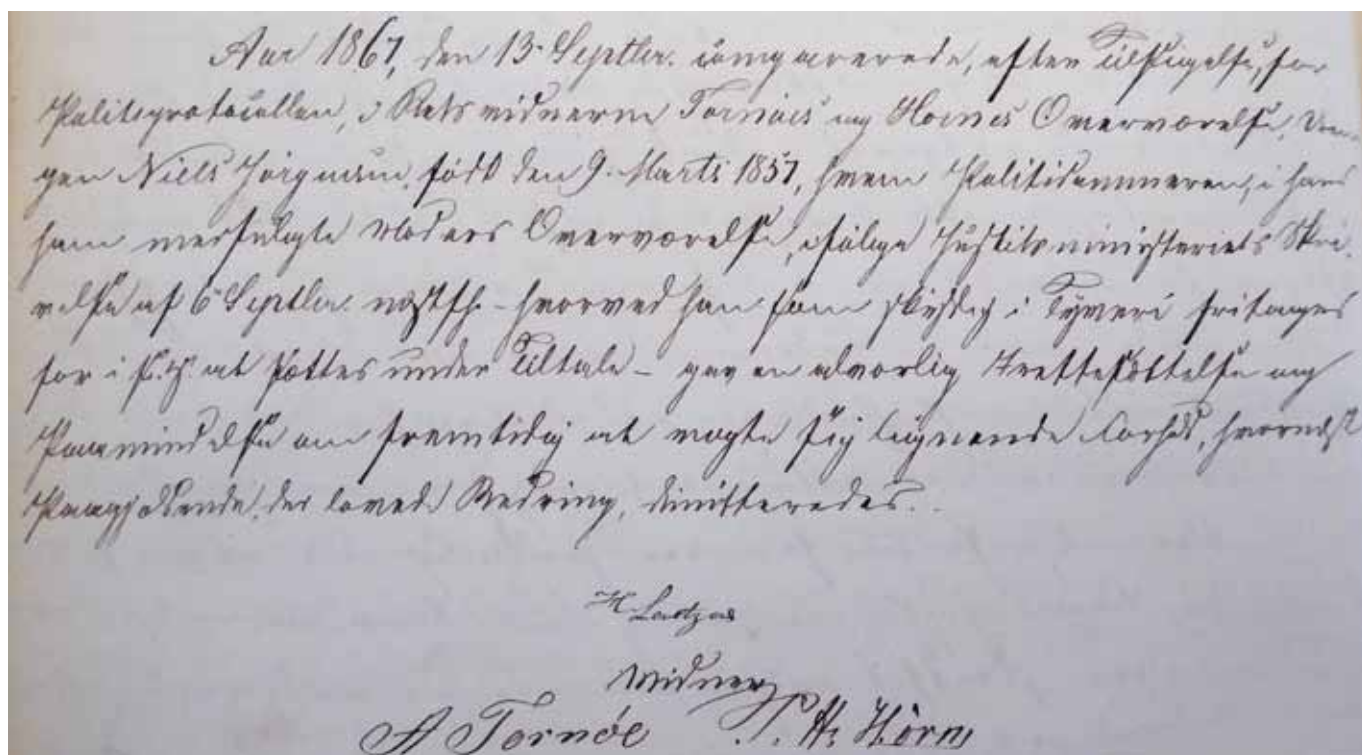 Aar 1867, den 13. Septbr. comparerede, efter Tilsigelse, for
Politiprotocollen, i Retsvidnerne Tornöes og Hörns Overværelse, Dren-
gen Niels Jörgensen, född den 9. Marts 1857, hvem Politidommeren, i
ham medfulgte Moders Overværelse, ifølge Justitsministeriets Skri-
velse af 6 Septbr. - hvorved han som skyldig i Tyveri fritages
for i s. H. at sættes under Tiltale - gav en alvorlig Irettesættelse og
Paamindelse om fremtidig at vogte sig lignende Forhold, hvornæst
Paagjældende, der lovede Bedring, dimitteredes.
Vidner
A Tornöe P. H. Hörn